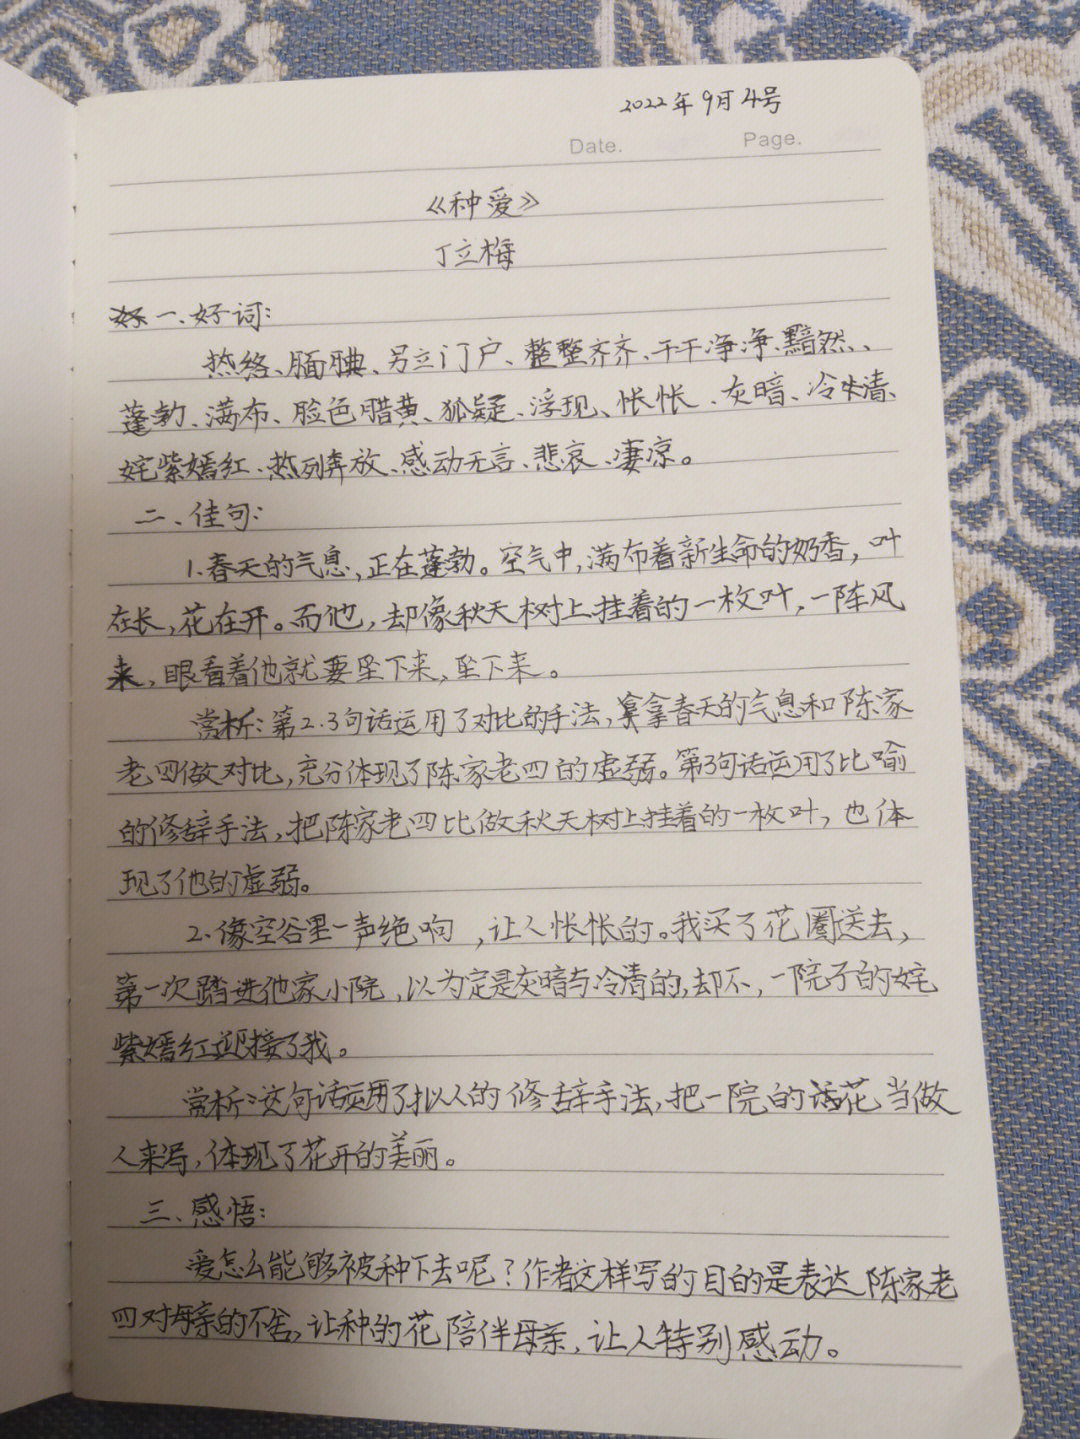 2022年9月4号
Date. Page.
《种爱》
丁立梅
一、好词：
热络、腼腆、另立门户、整整齐齐、干干净净、黯然、
蓬勃、满布、脸色腊黄、狐疑、浮现、怅怅、灰暗、冷清、
姹紫嫣红、热列奔放、感动无言、悲哀、凄凉。
二、佳句：
1.春天的气息，正在蓬勃。空气中，满布着新生命的奶香，叶
在长，花在开。而他，却像秋天树上挂着的一枚叶，一阵风
来，眼看着他就要坠下来，坠下来。
赏析：第2.3句话运用了对比的手法，拿春天的气息和陈家
老四做对比，充分体现了陈家老四的虚弱。第3句话运用了比喻
的修辞手法，把陈家老四比做秋天树上挂着的一枚叶，也体
现了他的虚弱。
2.像空谷里一声绝响，让人怅怅的。我买了花圈送去，
第一次踏进他家小院，以为定是灰暗与冷清的，却不，一院子的姹
紫嫣红迎接了我。
赏析：这句话运用了拟人的修辞手法，把一院的花当做
人来写，体现了花开的美丽。
三、感悟：
爱怎么能够被种下去呢？作者这样写的目的是表达陈家老
四对母亲的不舍，让种的花陪伴母亲，让人特别感动。